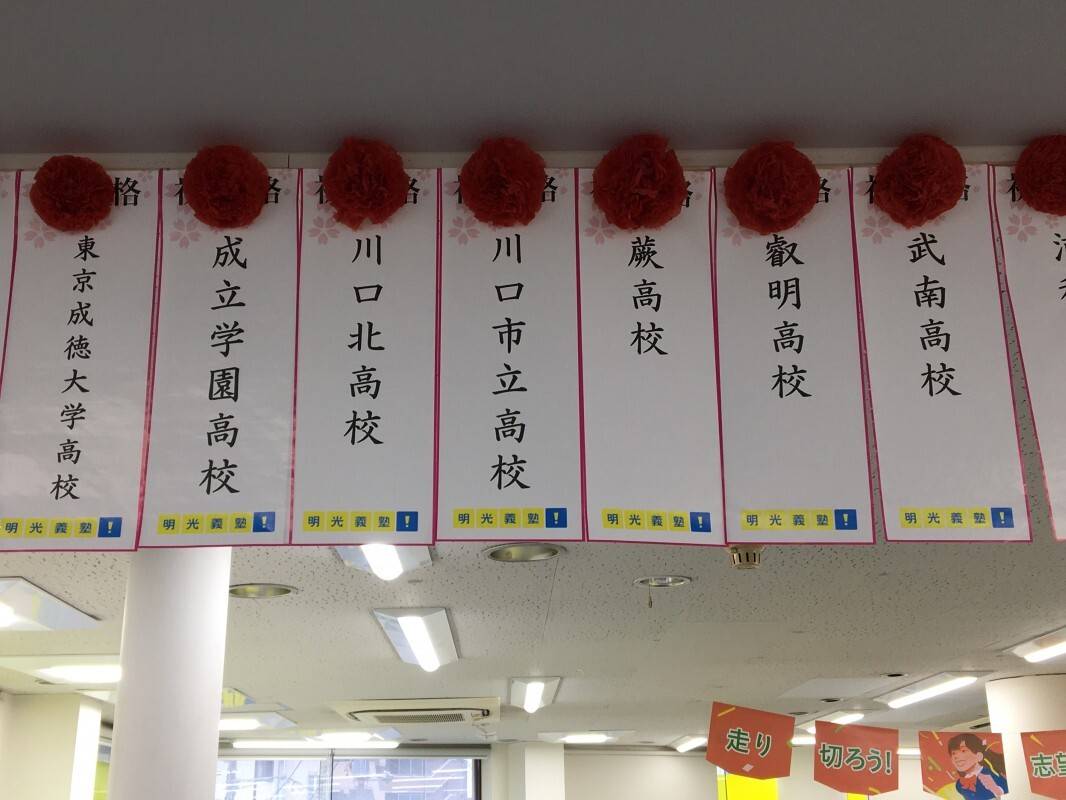 格
東京成徳大学高校
明光義塾!
祝 格
成立学園高校
明光義塾!
祝 格
川口北高校
明光義塾!
格
川口市立高校
明光義塾!
格
蕨高校
明光義塾!
格
叡明高校
明光義塾!
祝 格
武南高校
明光義塾!
祝
走り
切ろう!
志望